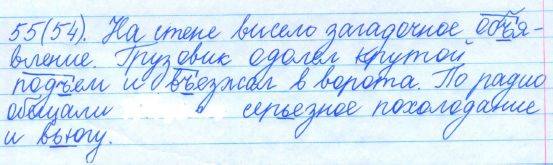 55(54). На стене висело загадочное объя-
вление. Грузовик одолел крутой
подъем и въезжал в ворота. По радио
обещали серьезное похолодание
и вьюгу.